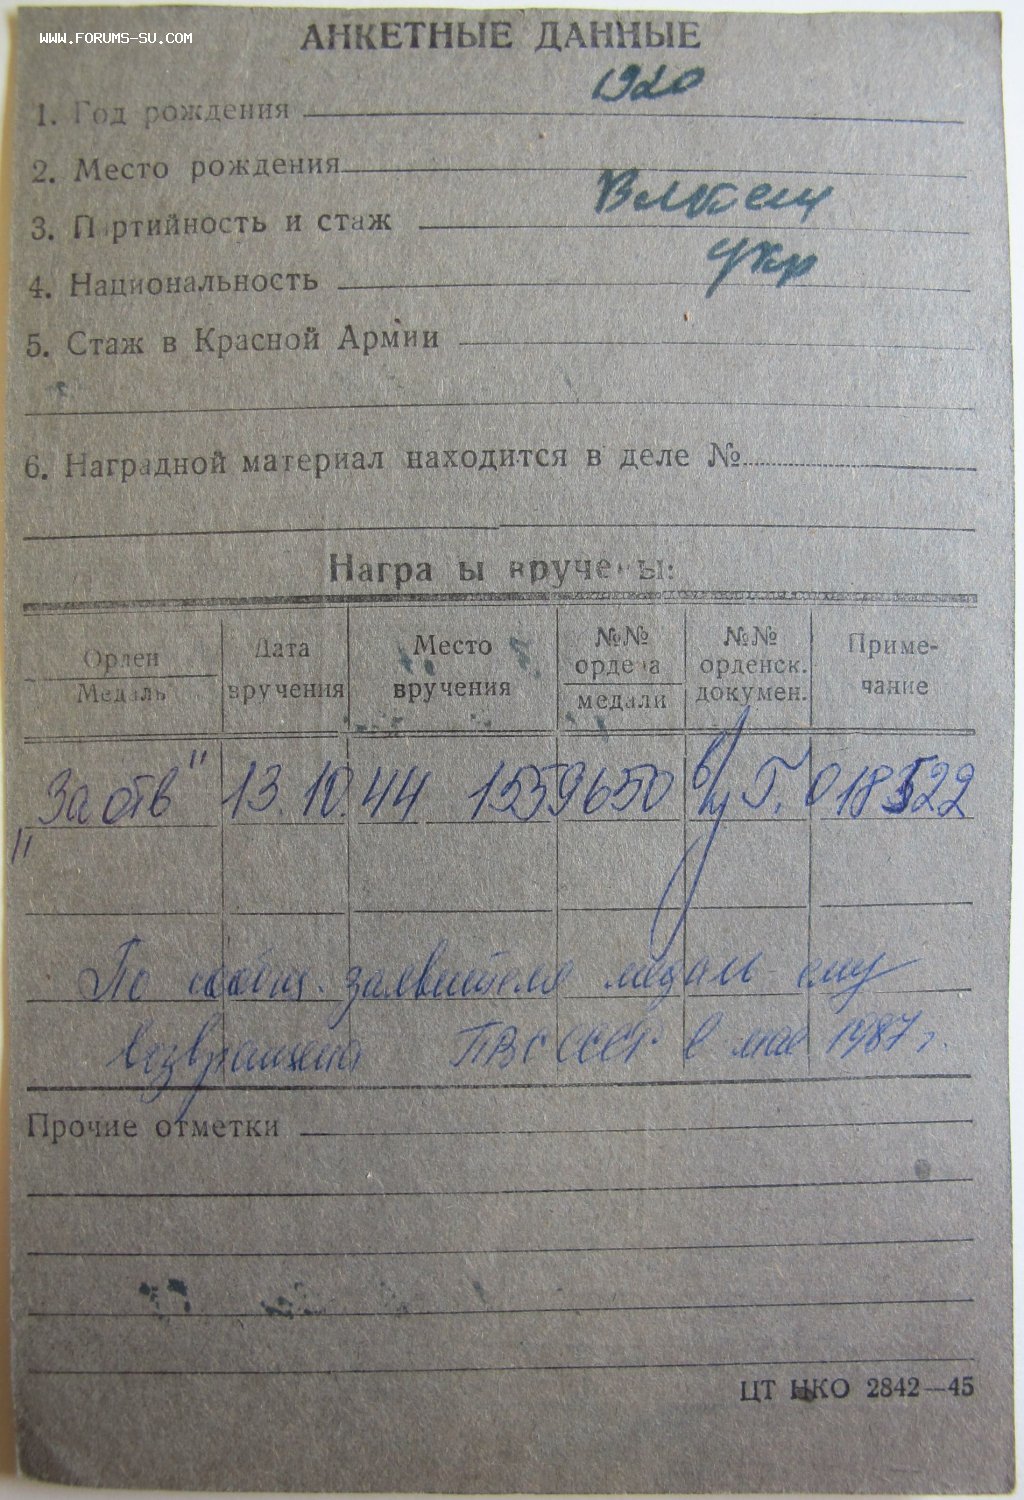 WWW.FORUMS-SU.COM
АНКЕТНЫЕ ДАННЫЕ
1920
1. Год рождения
2. Место рождения
Влксм
3. Партийность и стаж
укр
4. Национальность
5. Стаж в Красной Армии
6. Наградной материал находится в деле №
Награ ы вруче ы:
Орден
Медаль
Дата вручения
Место вручения
№№ ордена
медали
№№ орденск. докумен.
Приме-
чание
"За отв" 13.10.44 1559650 в/у Г. 018522
По сообщ. заявителя медаль ему
возвращена ПВС СССР в мае 1987 г.
Прочие отметки
ЦТ НКО 2842—45